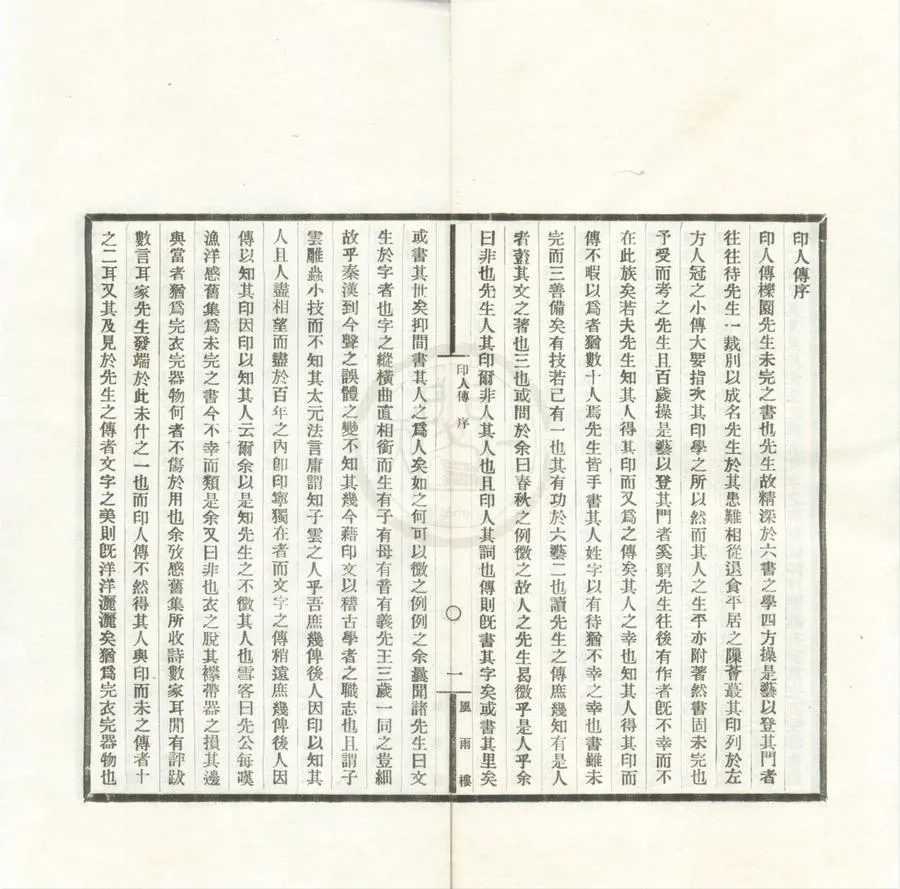 印人傳序
印人傳櫟園先生未完之書也先生故精深於六書之學四方操是藝以登其門者
往往待先生一裁別以成名先生於其患難相從退食平居之隟薈蕞其印列於左
方人冠之小傳大要指次其印學之所以然而其人之生平亦附著然書固未完也
予受而考之先生且百歲操是藝以登其門者奚窮先生往後有作者旣不幸而不
在此族矣若夫先生知其人得其印而又爲之傳矣其人之幸也知其人得其印而
傳不暇以爲者猶數十人焉先生皆手書其人姓字以有待猶不幸之幸也書雖未
完而三善備矣有技若己有一也其有功於六藝二也讀先生之傳庶幾知有是人
者蓋其文之著也三也或問於余曰春秋之例微之故人之先生曷微乎是人乎余
曰非也先生人其印爾非人其人也且印人其詞也傳則旣書其字矣或書其里矣
印人傳 序
一 風雨樓
或書其世矣抑間書其人之爲人矣如之何可以微之例例之余曩聞諸先生曰文
生於字者也字之縱橫曲直相衝而生有子有母有音有義先王三歲一同之豈細
故乎秦漢到今聲之誤體之變不知其幾今藉印文以稽古學者之職志也且謂子
雲雕蟲小技而不知其太元法言庸謂知子雲之人乎吾庶幾俾後人因印以知其
人且人盡相望而盡於百年之內卽印寧獨在者而文字之傳稍遠庶幾俾後人因
傳以知其印因印以知其人云爾余以是知先生之不微其人也雪客曰先公每嘆
漁洋感舊集爲未完之書今不幸而類是余又曰非也衣之脫其襻帶器之損其邊
與當者猶爲完衣完器物何者不傷於用也余攷感舊集所收詩數家耳閒有評跋
數言耳家先生發端於此未什之一也而印人傳不然得其人與印而未之傳者十
之二耳又其及見於先生之傳者文字之美則旣洋洋灑灑矣猶爲完衣完器物也